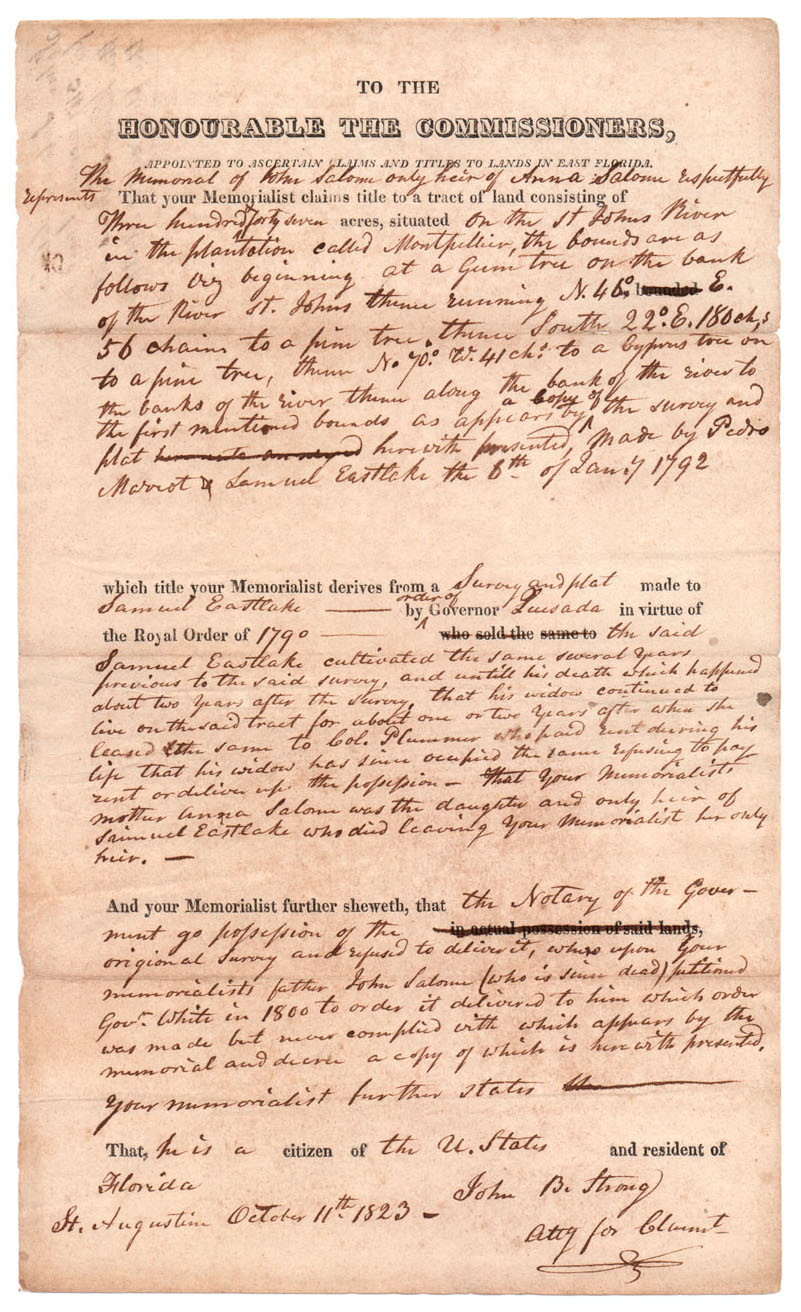 TO THE
HONOURABLE THE COMMISSIONERS,
APPOINTED TO ASCERTAIN CLAIMS AND TITLES TO LANDS IN EAST FLORIDA.
The Memorial of John Salom only heir of Anna Salom respectfully
represents That your Memorialist claims title to a tract of land consisting of
Three hundred forty seven acres, situated on the St Johns River
in the plantation called Montpellier, the bounds are as
follows viz beginning at a Gum tree on the bank
of the River St. Johns thence running N. 46º bounded E.
56 chains to a pine tree, thence South 22º. E. 180 chs
to a pine tree, thence Nº. 70º W. 41 chs. to a Cyprus tree on
the banks of the river thence along the bank of the river to
the first mentioned bounds as appears by a Copy of the survey and
plat herewith presented, made by Pedro
Marrot & Samuel Eastlake the 6th of Jany 1792
which title your Memorialist derives from a Survey and plat made to
Samuel Eastlake — by order of Governor Quesada in virtue of
the Royal Order of 1790 — who sold the same to the said
Samuel Eastlake cultivated the same several years
previous to the said survey, and untill his death which happened
about two years after the survey, that his widow continued to
live on the said tract for about one or two years after when she
leased the same to Col. Plummer who paid rent during his
life that his widow has since occupied the same refusing to pay
rent or deliver up the possession — that Your Memorialists
mother Anna Salom was the daughter and only heir of
Saimuel Eastlake who died leaving Your Memorialist her only
heir. —
And your Memorialist further sheweth, that the Notary of the Gover-
ment go possession of the in actual possession of said lands,
origional Survey and refused to deliver it, where upon Your
memorialists father John Salom (who is since dead) petitioned
Govr. White in 1800 to order it delivered to him which order
was made but never complied with which appears by the
memorial and decree a copy of which is herewith presented.
Your memorialist further states
That, he is a citizen of the U. States and resident of
Florida
John B. Strong
St. Augustine October 11th 1823 —
Atty for Claimt